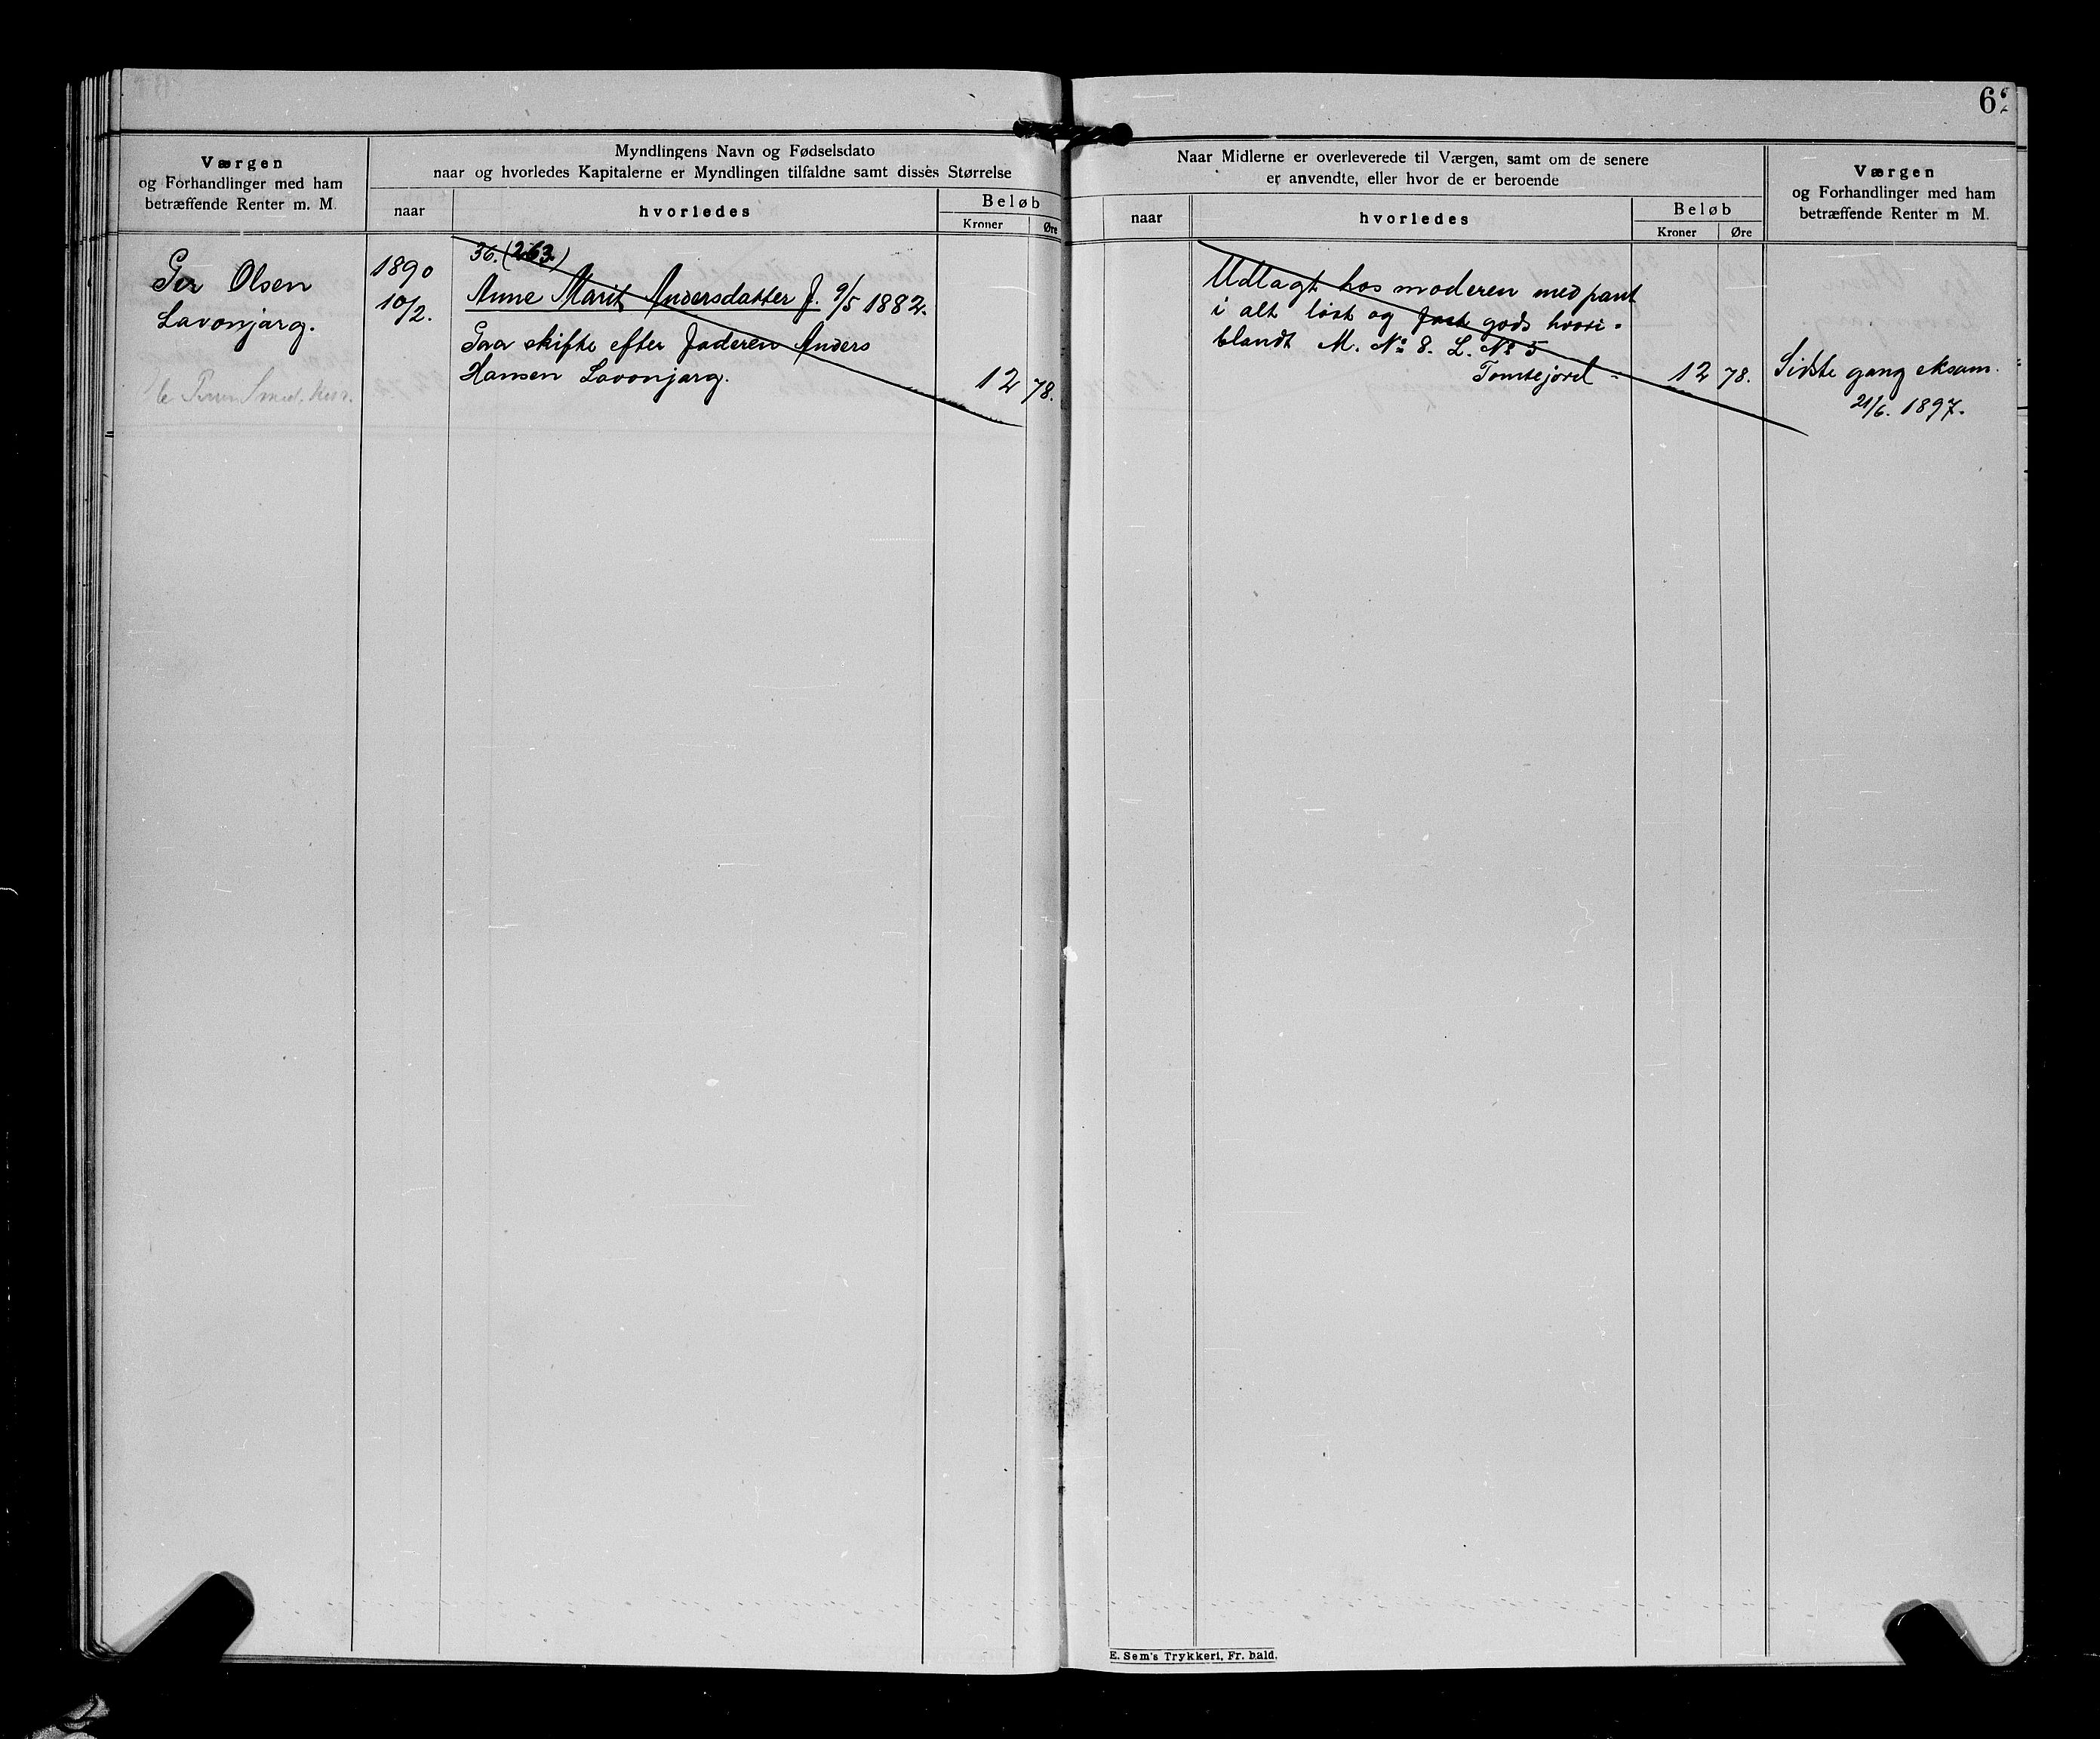 62
Værgen
og Forhandlinger med ham
betræffende Renter m. M.
Myndlingens Navn og Fødselsdato
naar og hvorledes Kapitalerne er Myndlingen tilfaldne samt disses Størrelse
naar
hvorledes
Beløb
Kroner
Øre
Per Olsen
Lavonjarg.
1890
10/2.
36. (263.)
Anne Marit Andersdatter f. 9/5 1882.
Paa skifte efter faderen Anders
Hansen Lavonjarg.
12 78.
Naar Midlerne er overleverede til Værgen, samt om de senere
er anvendte, eller hvor de er beroende
naar
hvorledes
Beløb
Kroner
Øre
Værgen
og Forhandlinger med ham
betræffende Renter m M.
Udlagt hos moderen med pant
i alt løst og fast gods hvori-
blandt M. No 8. L. No 5
Tomtejord - 12 78.
Sidste gang eksam.
21/6. 1897.
E. Sem's Trykkeri, Fr. hald.